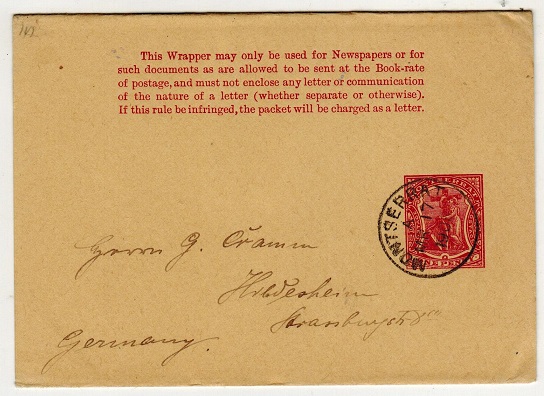 This Wrapper may only be used for Newspapers or for
such documents as are allowed to be sent at the Book-rate
of postage, and must not enclose any letter or communication
of the nature of a letter (whether separate or otherwise).
If this rule be infringed, the packet will be charged as a letter.
MONTSERRAT
A
17
MONTSERRAT
ONE PENNY
Herrn G. Cramm
Hildesheim
Germany.